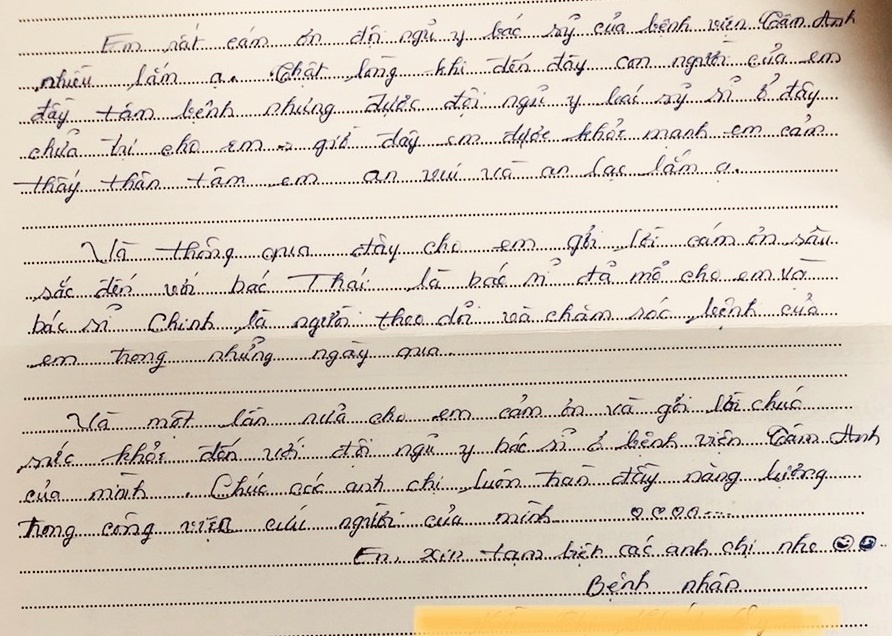 Em rất cám ơn đội ngủ y bác sỷ của bệnh viện Tâm Anh
nhiều lắm ạ. Thật lòng khi đến đây con người của em
đầy tám bệnh nhưng được đội ngủ y bác sỷ sỉ ở đây
chửa trị cho em. giờ đây em được khỏe mạnh em cảm
thấy thân tâm em an vui và an lạc lắm ạ.
Và thông qua đây cho em gởi lời cám ơn sâu
sắc đến với bác Thái là bác sỉ đả mổ cho em và
bác sỉ Chinh là người theo dỏi và chăm sóc bệnh của
em trong nhửng ngày qua
Và một lần nửa cho em cảm ơn và gởi lời chúc
sức khỏe đến với đội ngủ y bác sỉ ở bệnh viện Tâm Anh
của mình. Chúc các anh chị luôn tràn đầy năng lượng
trong công việc cứu người của mình
Em xin tạm biệt các anh chị nhe
Bệnh nhân